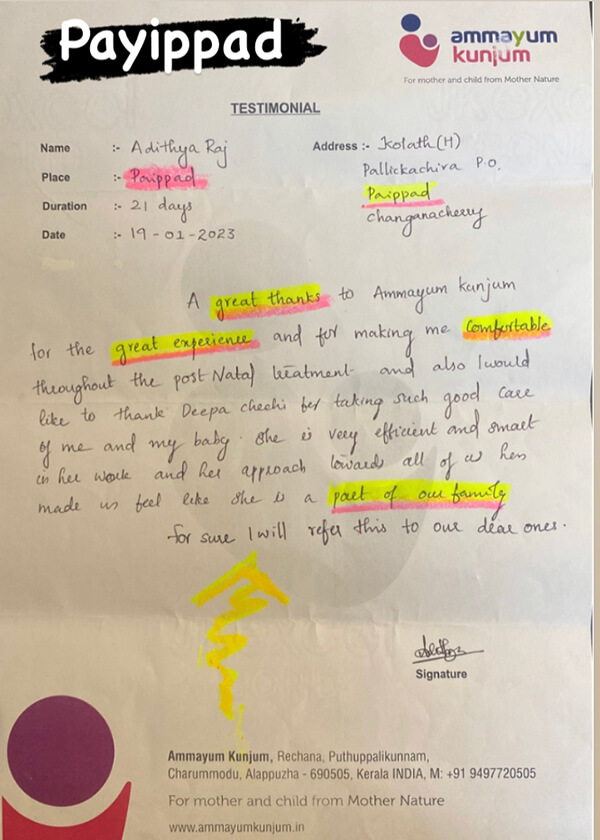 Payippad
ammayum
kunjum
For mother and child from Mother Nature
TESTIMONIAL
Name :- Adithya Raj
Place :- Paippad
Duration :- 21 days
Date :- 19-01-2023
Address :- Kolath(H)
Pallickachira P.O.
Paippad
Changanacherry
A great thanks to Ammayum kunjum
for the great experience and for making me Comfortable
throughout the post Natal treatment and also I would
like to thank Deepa chechi for taking such good care
of me and my baby. She is very efficient and smart
in her work and her approach towards all of us has
made us feel like she is a part of our family
For sure I will refer this to our dear ones.
Signature
Ammayum Kunjum, Rechana, Puthuppalikunnam,
Charummodu, Alappuzha - 690505, Kerala INDIA, M: +91 9497720505
For mother and child from Mother Nature
www.ammayumkunjum.in